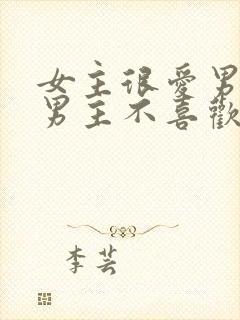 女主很愛男
男主不喜歡
李芸